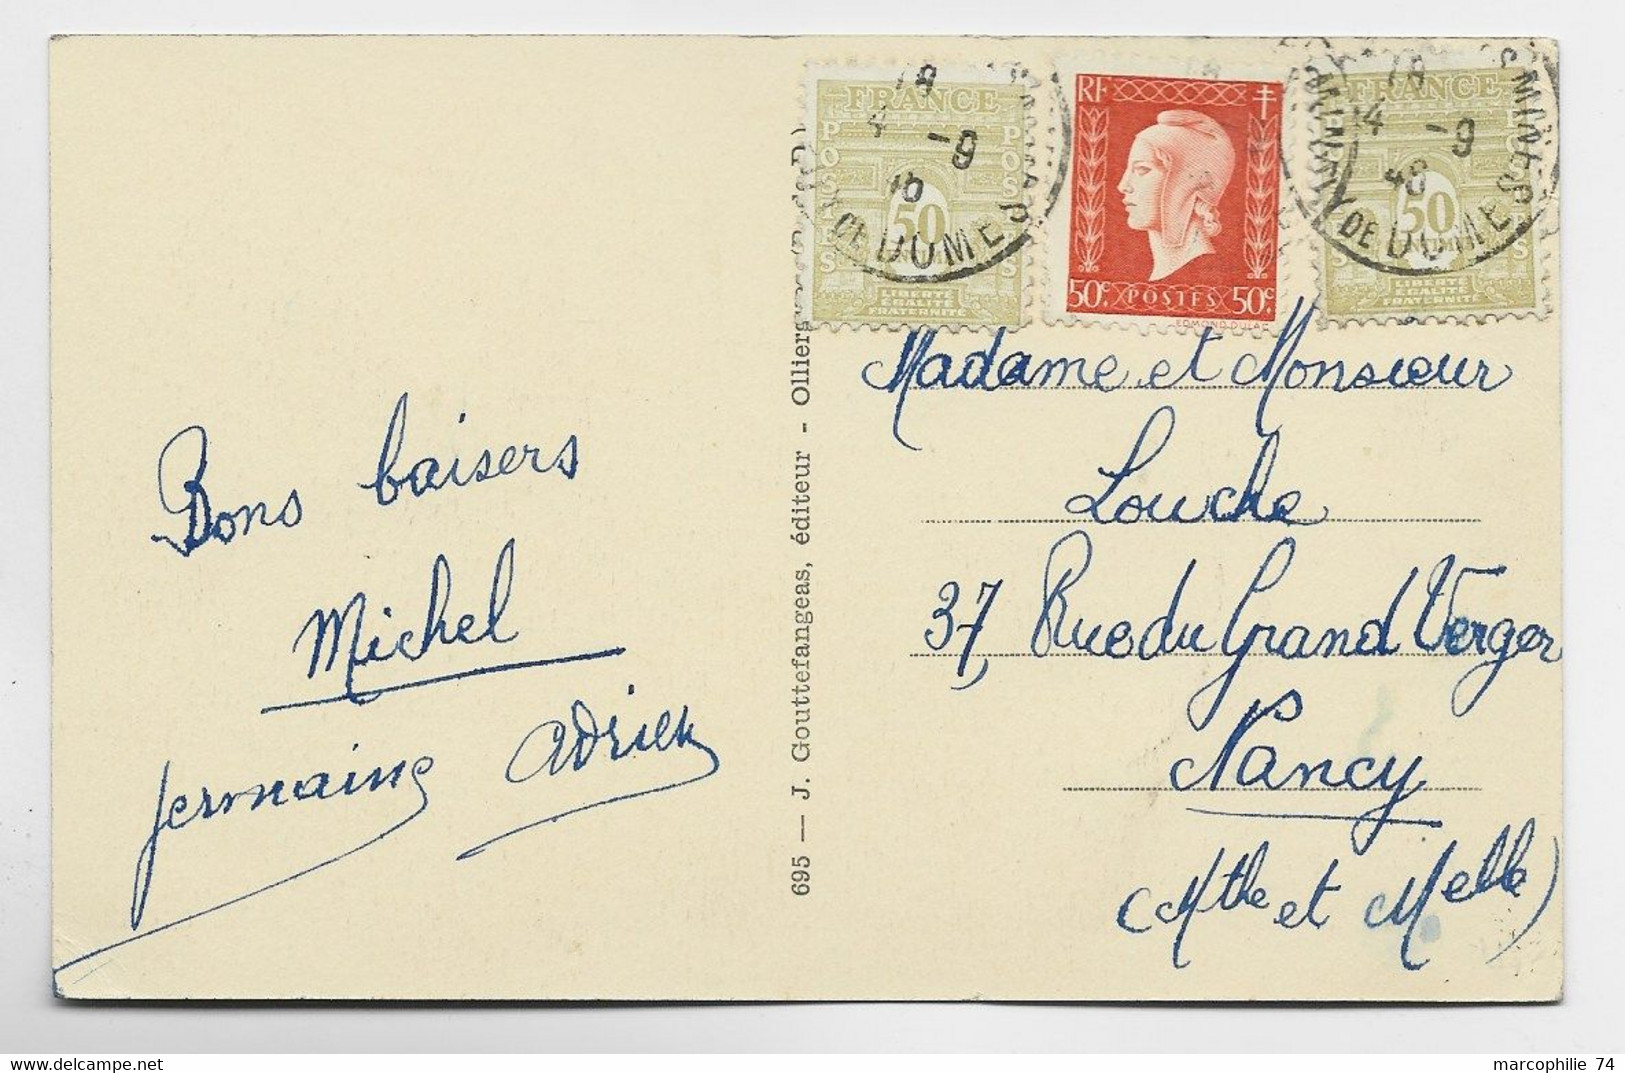 Bons baisers
Michel
germaine Adrien
695 — J. Gouttefangeas, éditeur - Olliergues
FRANCE
POSTES
POSTES
50
LIBERTÉ
ÉGALITÉ
FRATERNITÉ
18
4 -9
DE DOME
RF
50c. POSTES 50c.
EDMOND DULAC
FRANCE
POSTES
50
LIBERTÉ
ÉGALITÉ
FRATERNITÉ
18
14 -9
46
DE DOME
Madame et Monsieur
Louche
37 Rue du Grand Verger
Nancy
(Mthe et Melle)
marcophilie 74